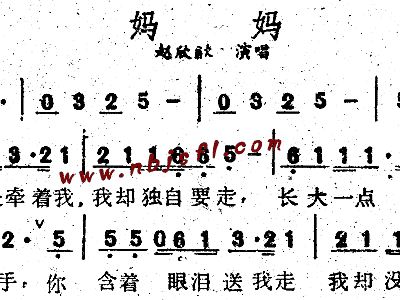 妈 妈
赵欣 演唱
0 3 2 5 － 0 3 2 5 －
3·2 1 2 1 1 6 6 5 － 6 1 1 1·
www.nbjsfl.com
牵着我，我却独自要走， 长大一点
2· 5 5 5 0 6 1 3·2 1 2 1 1
手， 你 含着 眼泪送我走 我却没